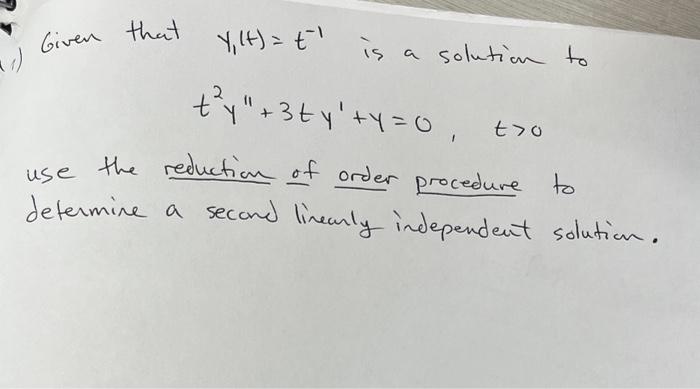 1) Given that y₁(t) = t⁻¹ is a solution to
t²y" + 3ty' + y = 0, t>0
use the reduction of order procedure to
determine a second linearly independent solution.